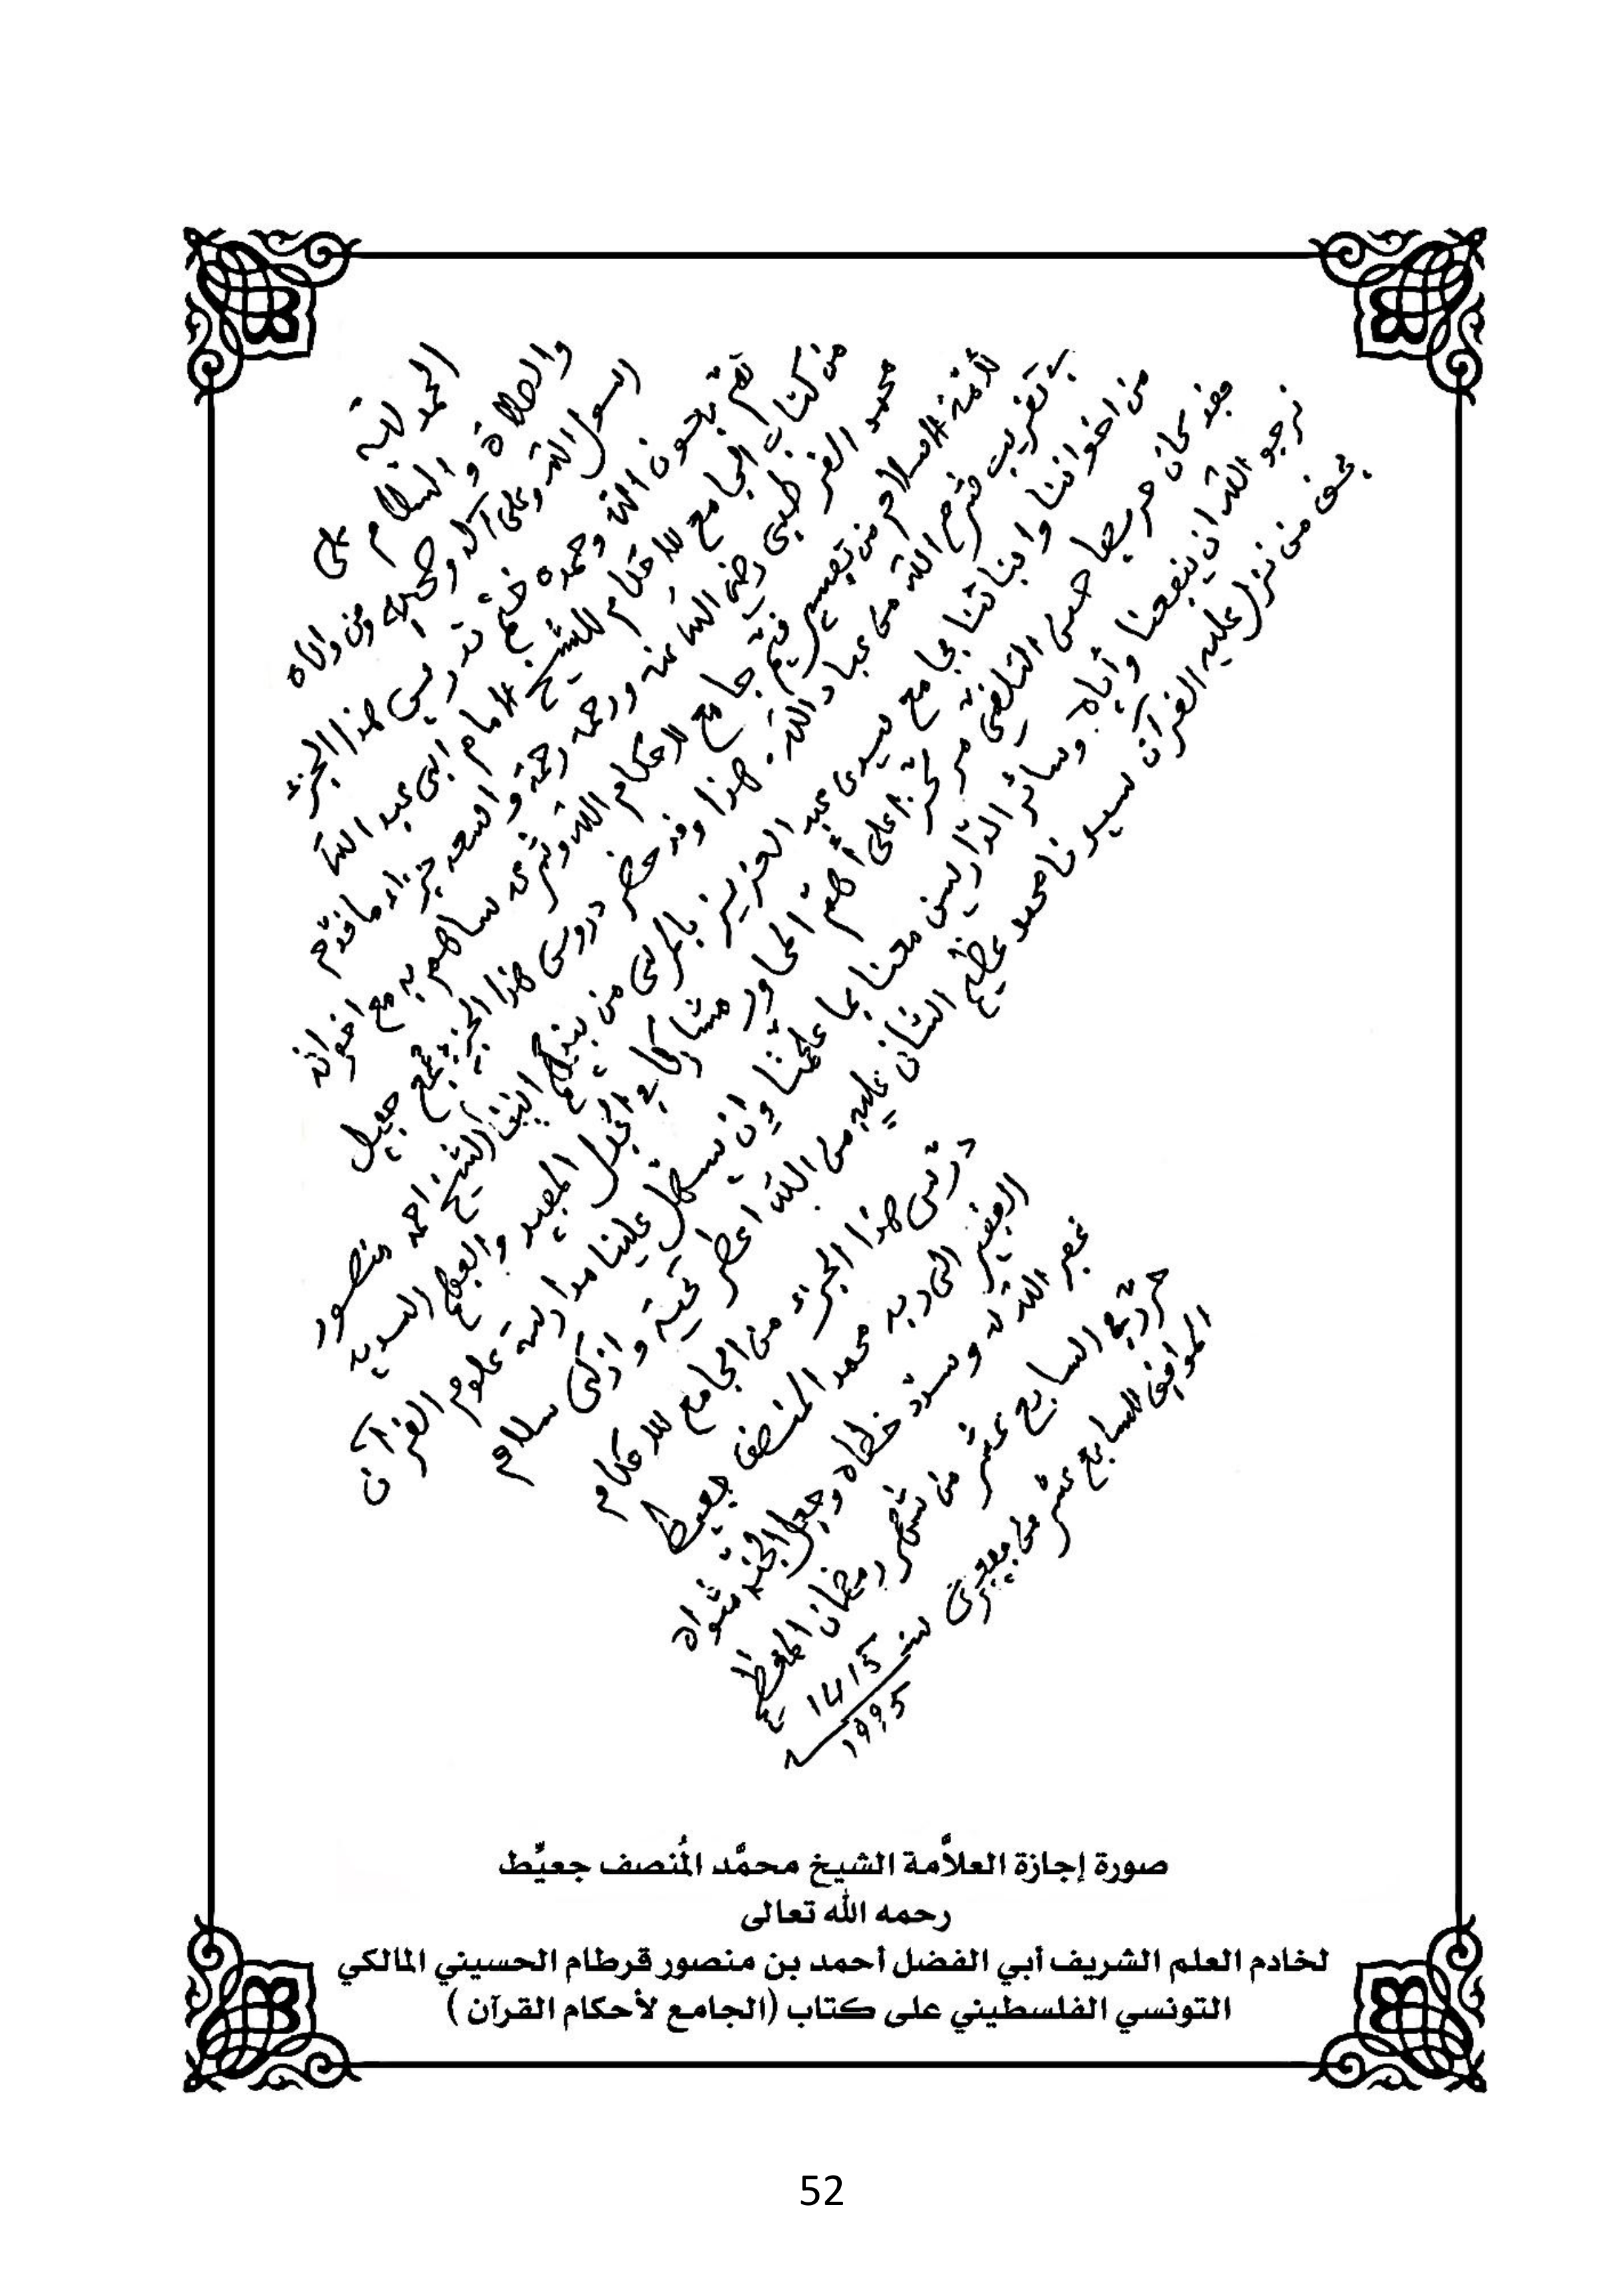 الحمد لله
والصلاة والسلام على
رسول الله وعلى آله وصحبه ومن والاه
تم بعون الله وحمده ختم تدريس هذا الجزء
من كتاب الجامع للاحكام للشيخ الامام ابى عبد الله
محمد القرطبى رضى الله عنه ورحمه رحمة واسعة جزاء ما قدم
للأمة الاسلامية من تفسير قيم جامع لاحكام الله وشرع ساهم به مع اخوانه
فى تقريب شرع الله من عباد الله. هذا وقد حضر دروس هذا الجزء جمع جميل
من اخواننا وابنائنا بجامع سيدى عبد العزيز بالمرسى من بينهم الشيخ احمد منصور
فقد كان حريصا حسن التلقى مركزا على أهم المحاور مشاركا فى الجدل المفيد والفهم السديد
نرجو الله ان ينفعنا وأياه وسائر الدارسين معنا بما علمنا وان يسهل علينا مدارسة علوم القرآن
بحق من نزل عليه القرآن سيدنا محمد عظيم الشأن عليه من الله اعطر تحية وازكى سلام
درّس هذا الجزء من الجامع للاحكام
الفقير الى ربه محمد المنصف جعيط
غفر الله له وسدد خطاه وجعل الجنة مثواه
حرر فى السابع عشر من شهر رمضان المعظم
الموافق السابع عشر من فيفرى سنة
1415
1995
صورة إجازة العلاَّمة الشيخ محمَّد المُنصف جعيِّط
رحمه الله تعالى
لخادم العلم الشريف أبي الفضل أحمد بن منصور قرطام الحسيني المالكي
التونسي الفلسطيني على كتاب (الجامع لأحكام القرآن )
52